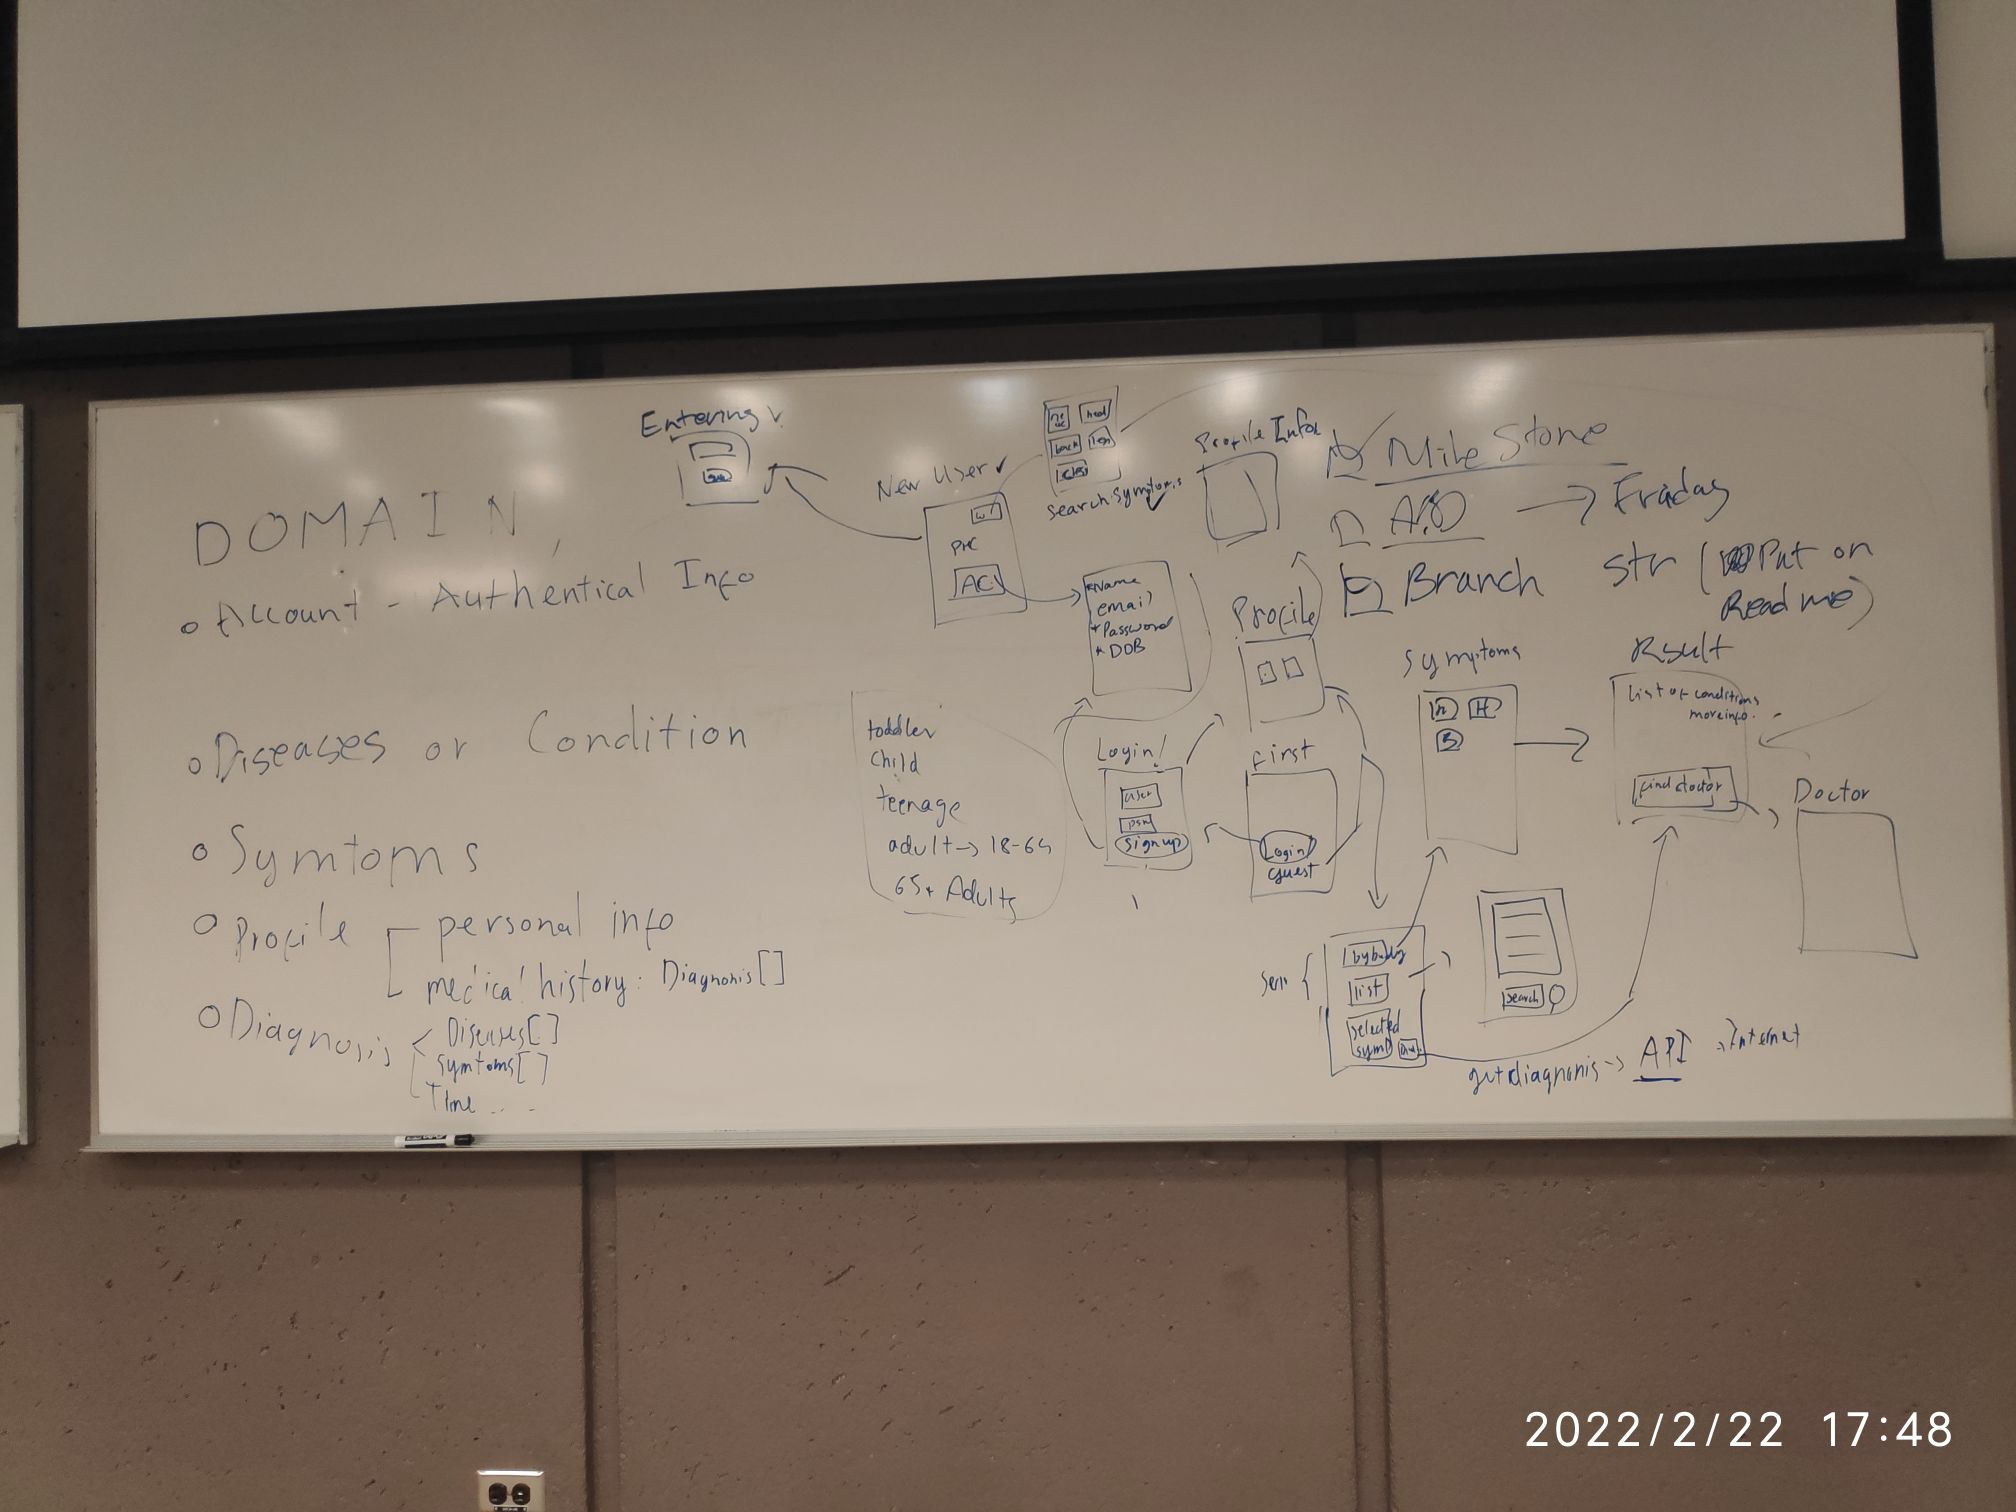 DOMAIN,
Account - Authentical Info
Diseases or Condition
Symtoms
Profile
personal info
medical history: Diagnonis[]
Diagnosis
Diseases[]
Symtoms[]
Time ....
Entering
New User
PHC
AC
head
back
leg
search symptoms
Name
email
*Password
* DOB
toddler
child
teenage
adult → 18-64
65+ Adults
Login
user
psw
sign up
Profile Info
Profile
First
Login
guest
Mile Stone
→ Friday
Branch
str (Put on
Read me)
Symptoms
H
B
Rsult
List of conditions
more info.
find doctor
Doctor
by body
list
selected
symp
search
getdiagnonis → API → Internet
2022/2/22 17:48